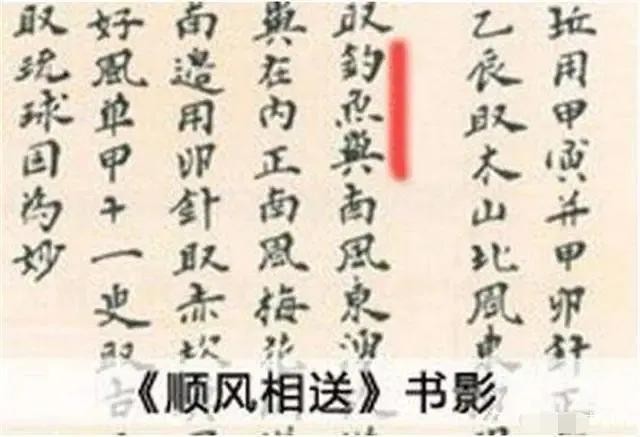 用甲寅并甲卯針正
乙辰取木山北風東
取釣魚嶼南風東湧
嶼在内正南風梅花
南邉用卯針取赤坎
好風单甲十一更取古
取琉球国為妙
《顺风相送》书影